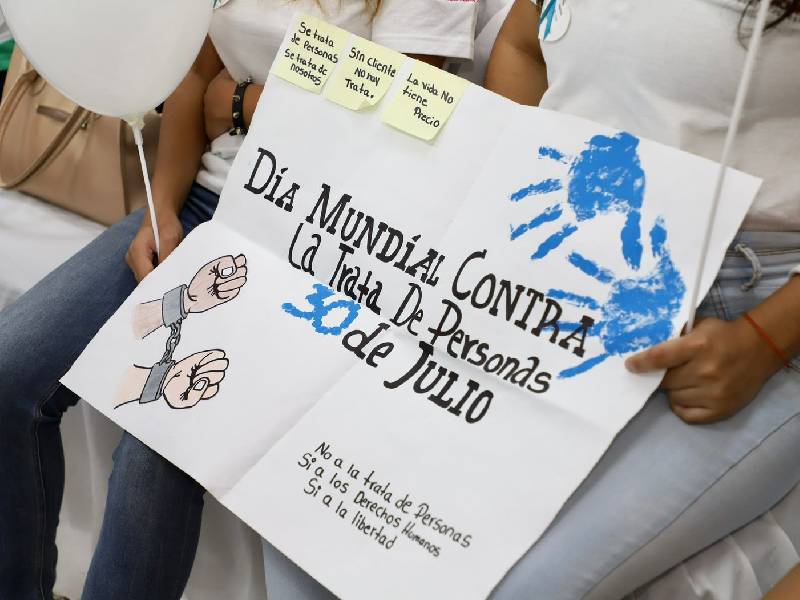 Se trata
de Personas
Se trata de
nosotros
Sin Cliente
No hay
Trata.
La vida No
tiene
Precio
Día Mundial Contra
La Trata De Personas
30 de Julio
No a la trata de Personas
Si a los Derechos Humanos
Si a la libertad